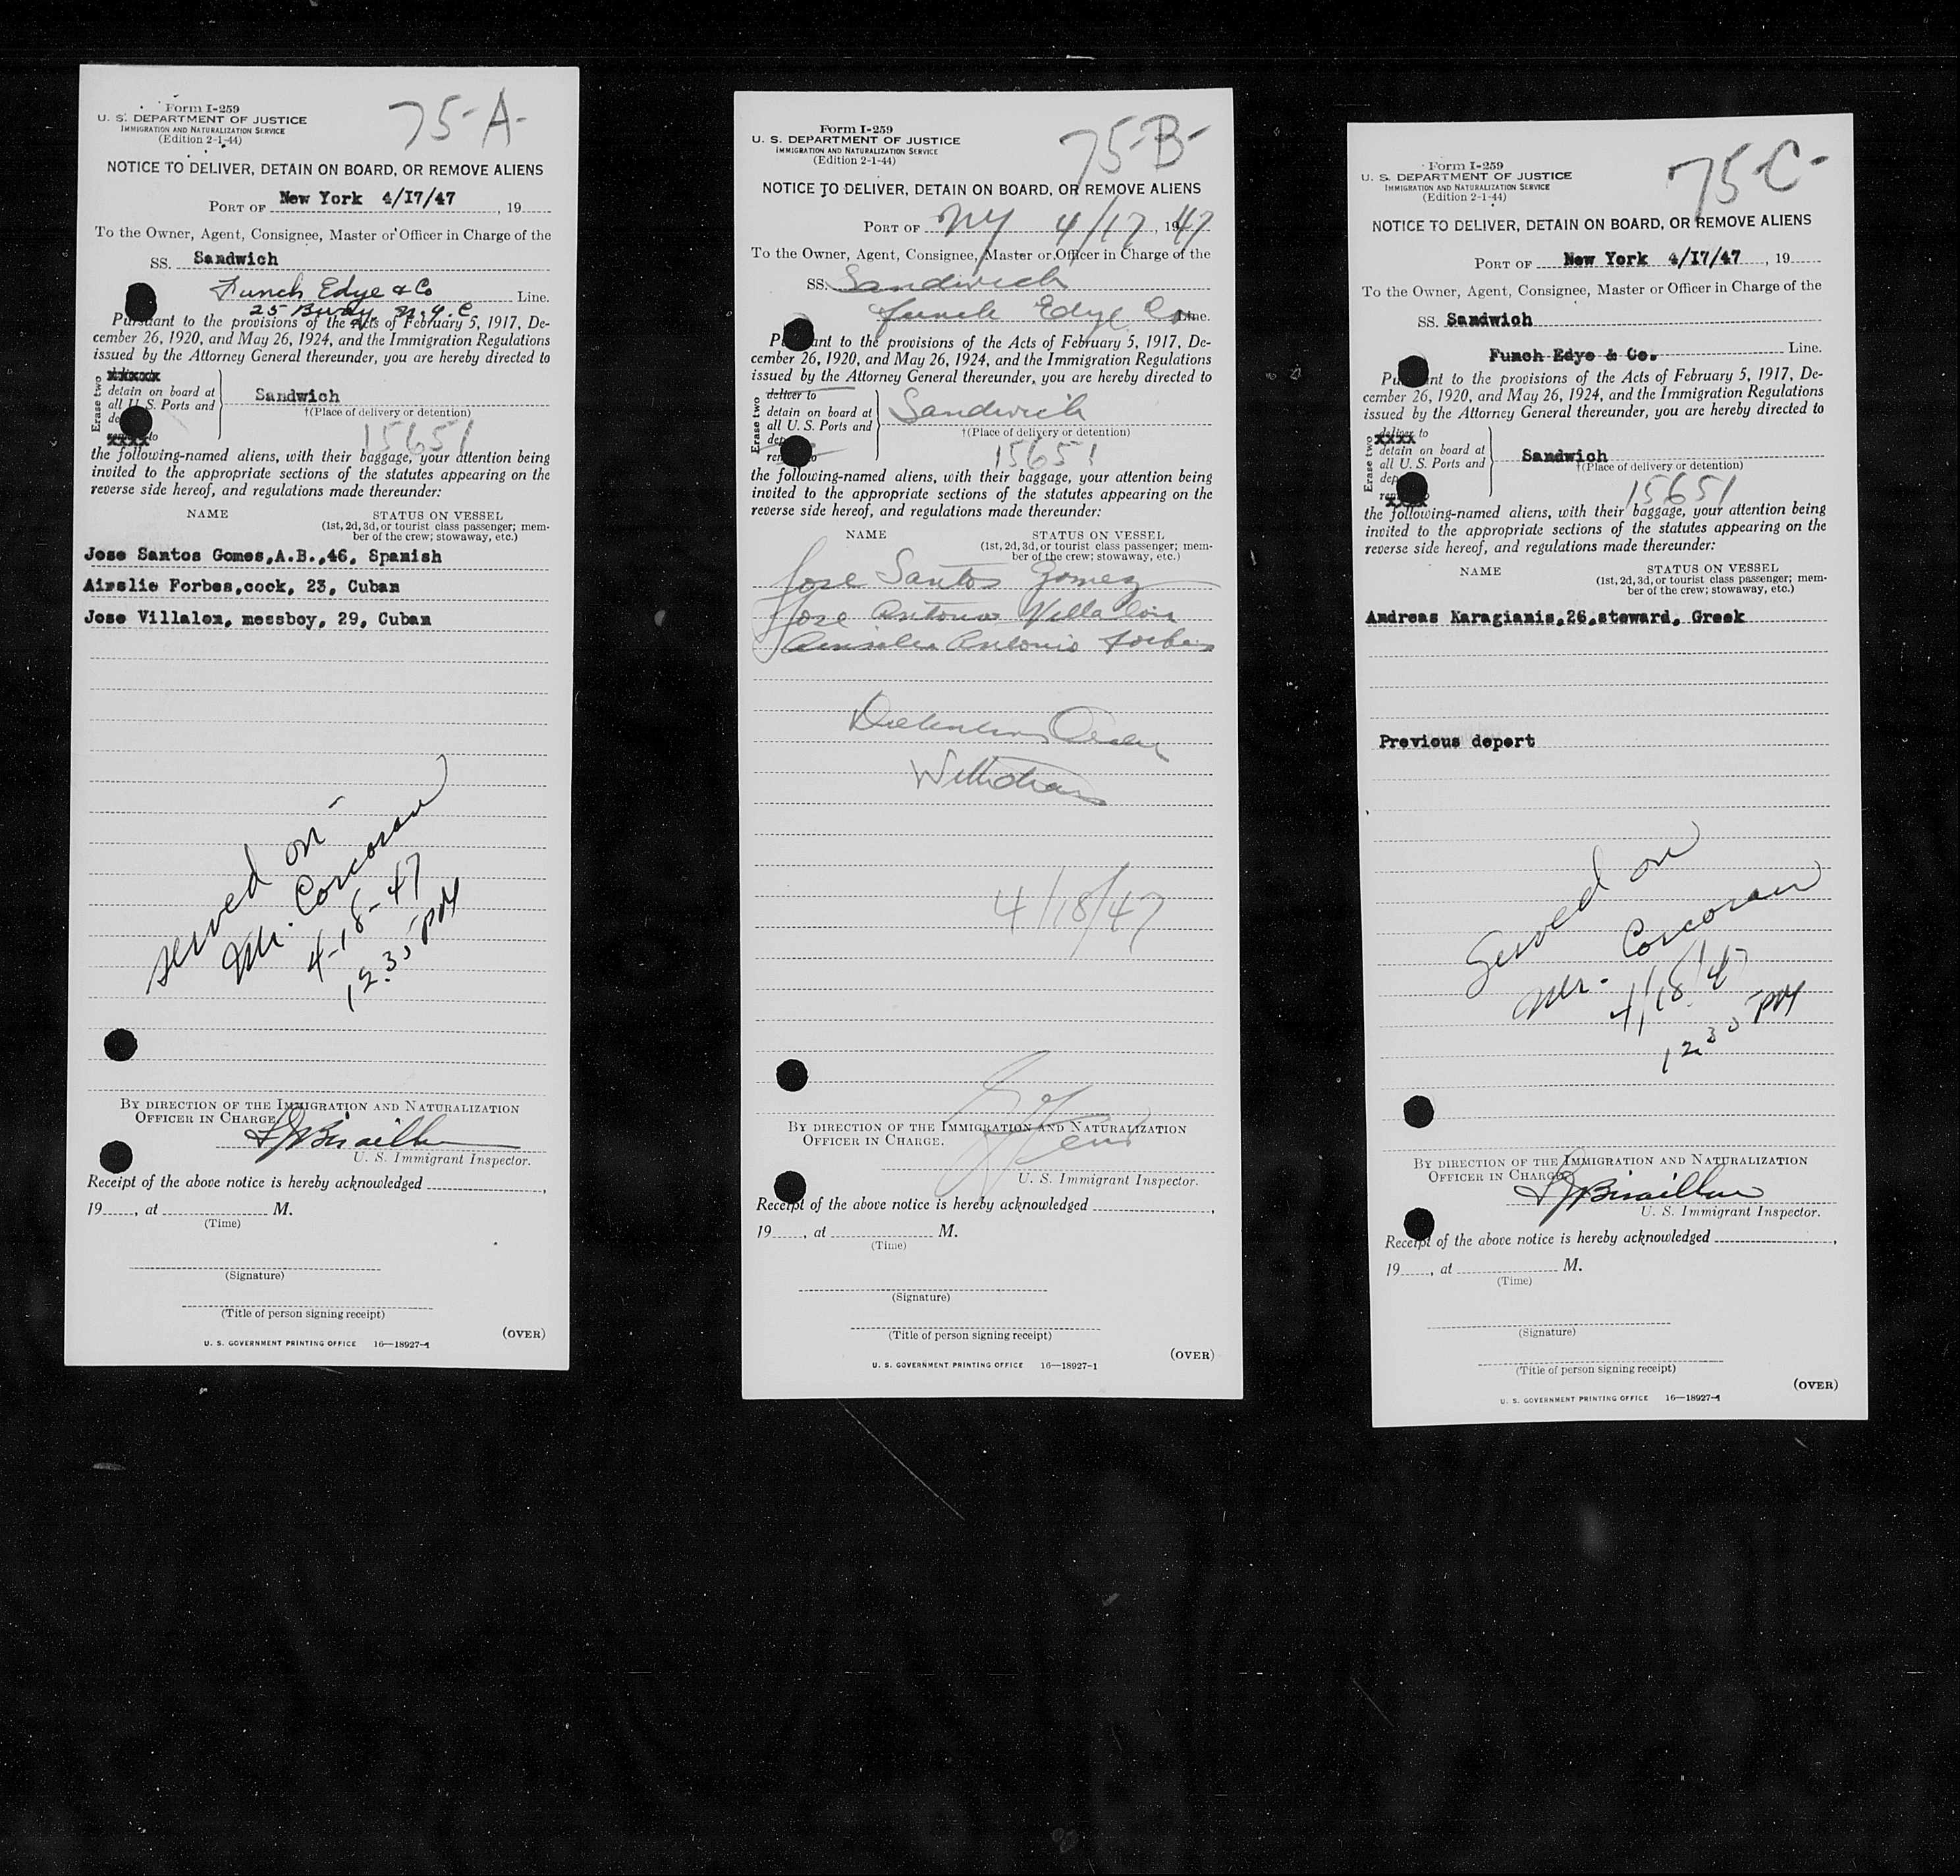 75-A-
Form I-259
U. S. DEPARTMENT OF JUSTICE
IMMIGRATION AND NATURALIZATION SERVICE
(Edition 2-1-44)
NOTICE TO DELIVER, DETAIN ON BOARD, OR REMOVE ALIENS
PORT OF New York 4/I7/47, 19
To the Owner, Agent, Consignee, Master or Officer in Charge of the
SS. Sandwich
Funch Edye & Co Line.
25 Bwdy. N.Y.C
Pursuant to the provisions of the Acts of February 5, 1917, De-
cember 26, 1920, and May 26, 1924, and the Immigration Regulations
issued by the Attorney General thereunder, you are hereby directed to
Erase two
xxxxx
detain on board at
all U.S. Ports and
to
Sandwich
†(Place of delivery or detention)
15651
the following-named aliens, with their baggage, your attention being
invited to the appropriate sections of the statutes appearing on the
reverse side hereof, and regulations made thereunder:
NAME STATUS ON VESSEL
(1st, 2d, 3d, or tourist class passenger; mem-
ber of the crew; stowaway, etc.)
Jose Santos Gomes,A.B.,46, Spanish
Ainslie Forbes,cock, 23, Cuban
Jose Villalon, messboy, 29, Cuban
served on -
Mr. Corcoran
4-18-47
12.35 PM
BY DIRECTION OF THE IMMIGRATION AND NATURALIZATION
OFFICER IN CHARGE.
U. S. Immigrant Inspector.
Receipt of the above notice is hereby acknowledged ,
19 , at M.
(Time)
(Signature)
(Title of person signing receipt)
U. S. GOVERNMENT PRINTING OFFICE 16—18927-1
(OVER)
75-B-
Form I-259
U. S. DEPARTMENT OF JUSTICE
IMMIGRATION AND NATURALIZATION SERVICE
(Edition 2-1-44)
NOTICE TO DELIVER, DETAIN ON BOARD, OR REMOVE ALIENS
PORT OF NY 4/17, 1947
To the Owner, Agent, Consignee, Master or Officer in Charge of the
SS. Sandwich
Funch Edye Co Line.
Pursuant to the provisions of the Acts of February 5, 1917, De-
cember 26, 1920, and May 26, 1924, and the Immigration Regulations
issued by the Attorney General thereunder, you are hereby directed to
Erase two
deliver to
detain on board at
all U. S. Ports and
Sandwich
†(Place of delivery or detention)
15651
the following-named aliens, with their baggage, your attention being
invited to the appropriate sections of the statutes appearing on the
reverse side hereof, and regulations made thereunder:
NAME STATUS ON VESSEL
(1st, 2d, 3d, or tourist class passenger; mem-
ber of the crew; stowaway, etc.)
Jose Santos Gomez
Jose Antonio Villalon
Antonio Forbes
Detention Order
Withdrawn
4/18/47
BY DIRECTION OF THE IMMIGRATION AND NATURALIZATION
OFFICER IN CHARGE.
U. S. Immigrant Inspector.
Receipt of the above notice is hereby acknowledged ,
19 , at M.
(Time)
(Signature)
(Title of person signing receipt)
U. S. GOVERNMENT PRINTING OFFICE 16—18927-1
(OVER)
75-C-
Form I-259
U. S. DEPARTMENT OF JUSTICE
IMMIGRATION AND NATURALIZATION SERVICE
(Edition 2-1-44)
NOTICE TO DELIVER, DETAIN ON BOARD, OR REMOVE ALIENS
PORT OF New York 4/I7/47, 19
To the Owner, Agent, Consignee, Master or Officer in Charge of the
SS. Sandwich
Funch Edye & Co. Line.
Pursuant to the provisions of the Acts of February 5, 1917, De-
cember 26, 1920, and May 26, 1924, and the Immigration Regulations
issued by the Attorney General thereunder, you are hereby directed to
Erase two
deliver to
detain on board at
all U. S. Ports and
Sandwich
†(Place of delivery or detention)
15651
the following-named aliens, with their baggage, your attention being
invited to the appropriate sections of the statutes appearing on the
reverse side hereof, and regulations made thereunder:
NAME STATUS ON VESSEL
(1st, 2d, 3d, or tourist class passenger; mem-
ber of the crew; stowaway, etc.)
Andreas Karagianis,26,steward, Greek
Previous deport
Served on
Mr. Corcoran
4/18/47
12.35 PM
BY DIRECTION OF THE IMMIGRATION AND NATURALIZATION
OFFICER IN CHARGE.
U. S. Immigrant Inspector.
Receipt of the above notice is hereby acknowledged ,
19 , at M.
(Time)
(Signature)
(Title of person signing receipt)
U. S. GOVERNMENT PRINTING OFFICE 16—18927-1
(OVER)